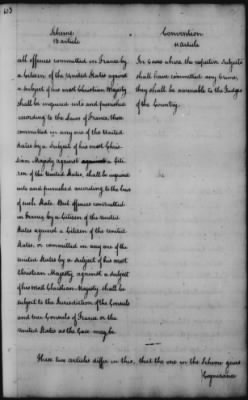 Scheme
13 article
all offences committed in France by
a Citizen of the United States against
a subject of his most Christian Majesty
shall be enquired into and punished
according to the Laws of France, those
committed in any one of the United
States by a Subject of his most Chris-
tian Majesty against a Citi-
zen of the United States, shall be enquired
into and punished according to the laws
of such State. But offences committed
in France by a Citizen of the United
States against a Citizen of the United
States, or committed in any one of the
United States by a subject of his most
Christian Majesty against a subject
of his most Christian Majesty shall be
subject to the Jurisdiction of the Consuls
and vice Consuls of France or the
United States as the Case may be
Convention
article
In Cases where the respective Subjects
shall have committed any Crime,
they shall be amenable to the Judges
of the Country.
These two articles differ in this, that the one in the Scheme gives
Cognizance